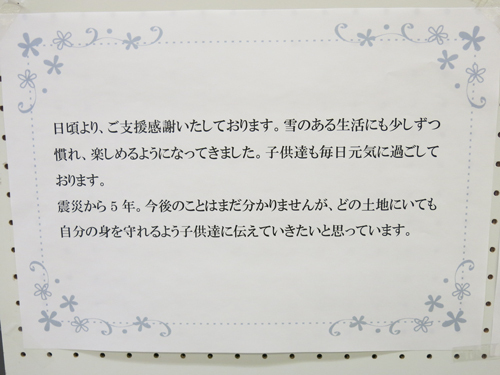 日頃より、ご支援感謝いたしております。雪のある生活にも少しずつ
慣れ、楽しめるようになってきました。子供達も毎日元気に過ごして
おります。
震災から5年。今後のことはまだ分かりませんが、どの土地にいても
自分の身を守れるよう子供達に伝えていきたいと思っています。